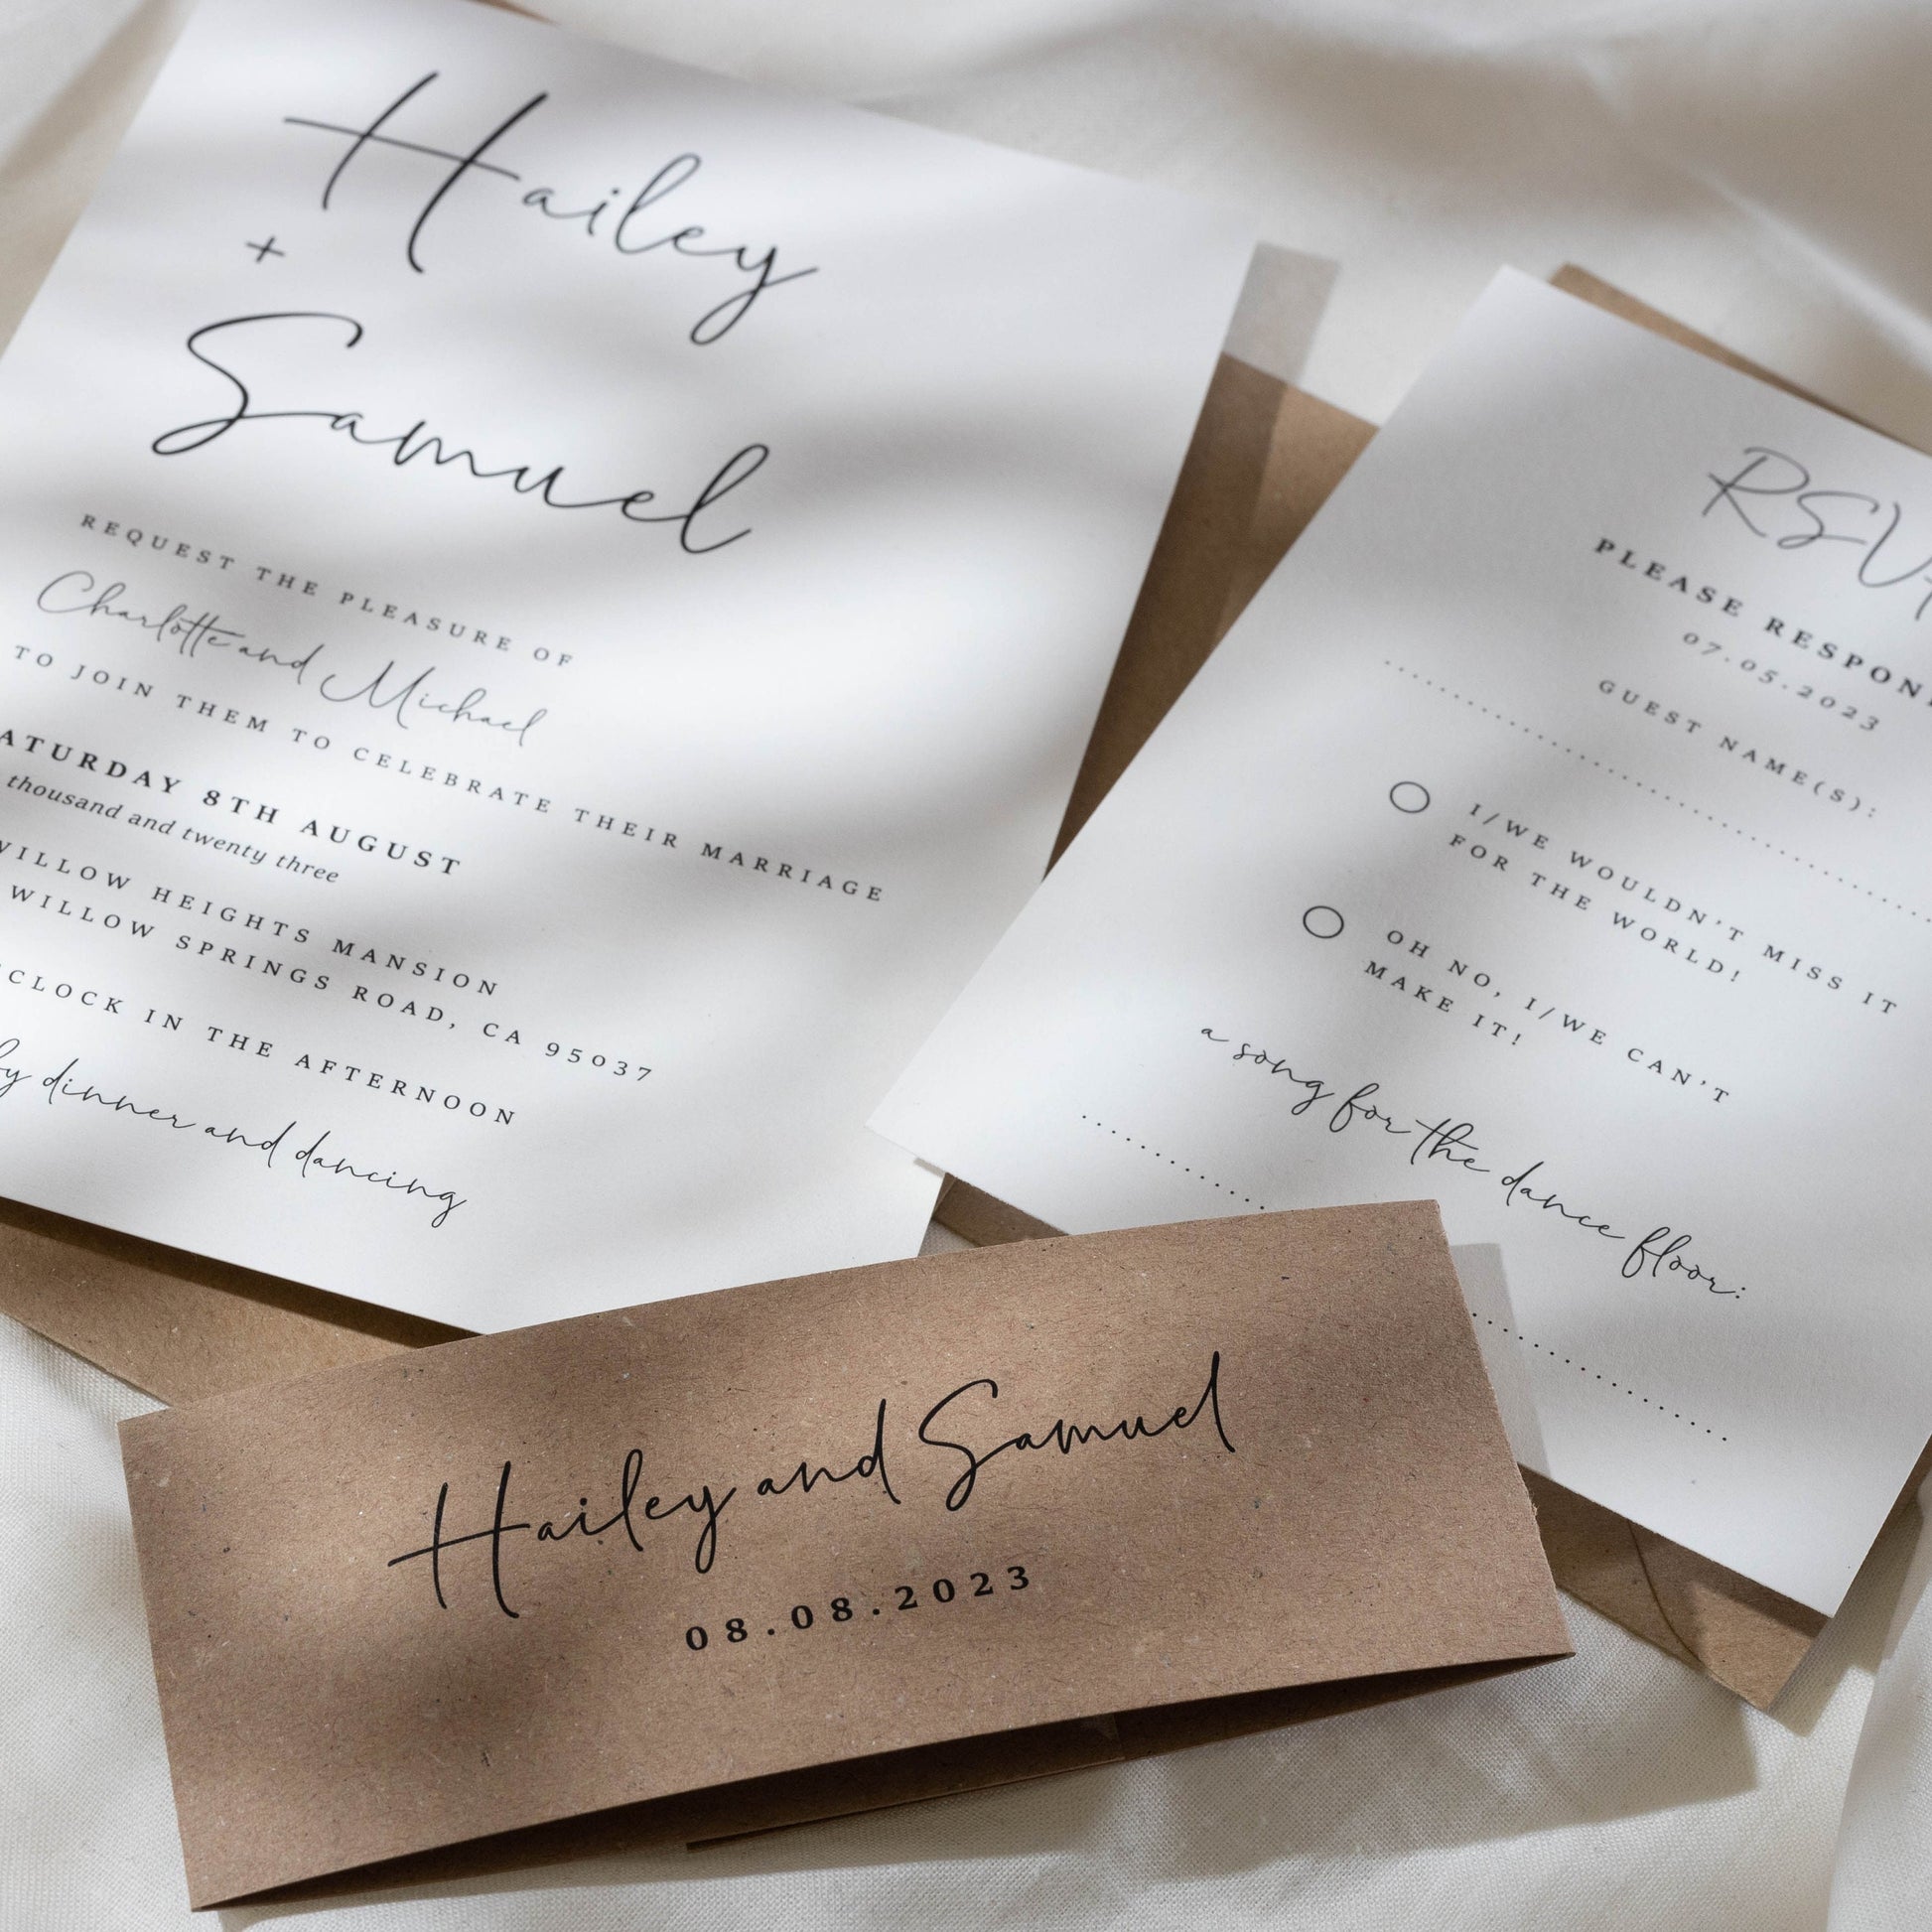 Hailey
+
Samuel
REQUEST THE PLEASURE OF
Charlotte and Michael
TO JOIN THEM TO CELEBRATE THEIR MARRIAGE
ATURDAY 8TH AUGUST
thousand and twenty three
WILLOW HEIGHTS MANSION
WILLOW SPRINGS ROAD, CA 95037
CLOCK IN THE AFTERNOON
by dinner and dancing
RSV
PLEASE RESPON
07.05.2023
GUEST NAME(S):
I/WE WOULDN'T MISS IT
FOR THE WORLD!
OH NO, I/WE CAN'T
MAKE IT!
a song for the dance floor:
Hailey and Samuel
08.08.2023